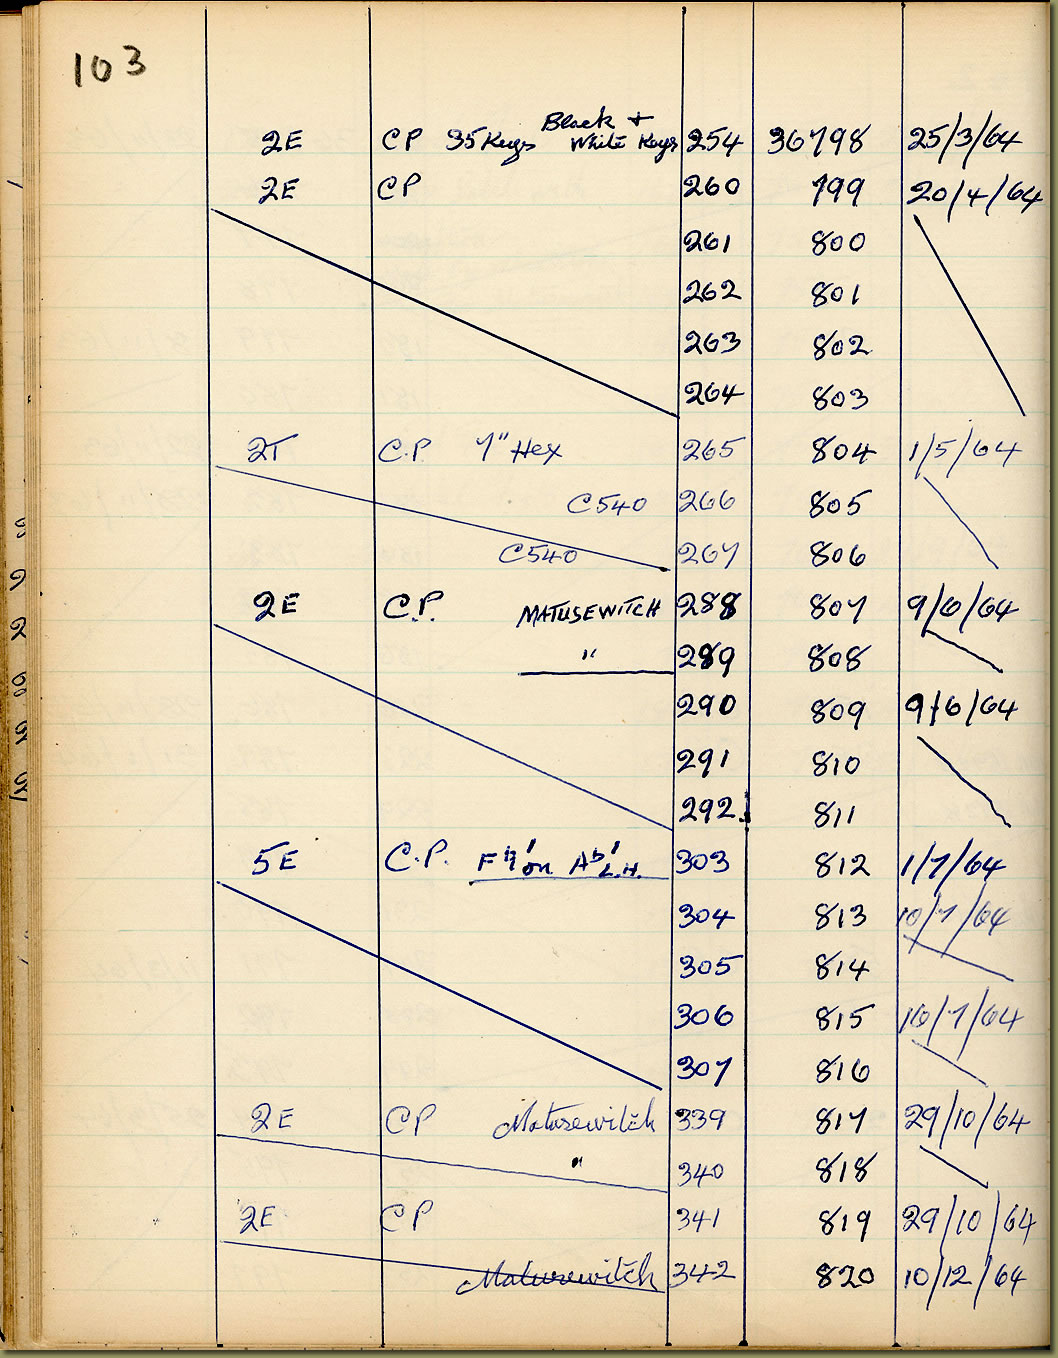 103
2E CP 35 Keys Black + White Keys 254 36798 25/3/64
2E CP 260 799 20/4/64
261 800
262 801
263 802
264 803
2T C.P. 7" Hex 265 804 1/5/64
C540 266 805
C540 267 806
2E C.P. MATUSEWITCH 288 807 9/6/64
" 289 808
290 809 9/6/64
291 810
292 811
5E C.P. on L.H. 303 812 1/7/64
304 813 10/7/64
305 814
306 815 10/7/64
307 816
2E CP Matusewitch 339 817 29/10/64
" 340 818
2E CP 341 819 29/10/64
Matusewitch 342 820 10/12/64